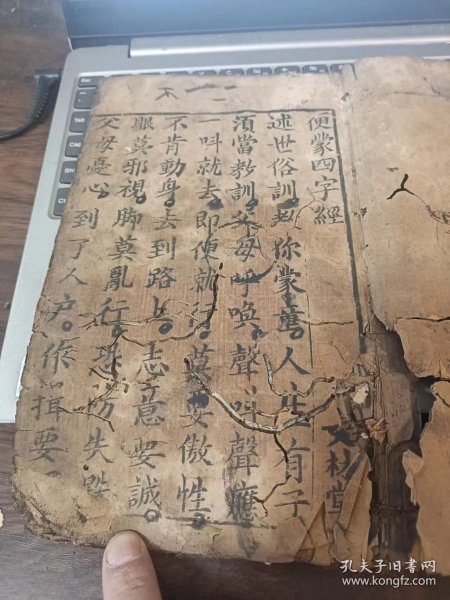 便蒙四字經
文林堂
述世俗訓教你蒙童人生有子
須當教訓父母呼喚聲叫聲應
一叫就去即便就行莫要傲性
不肯動身去到路上志意要誠
眼莫邪視脚莫亂行恐防失跌
父母憂心到了人户作揖要
孔夫子旧书网
www.kongfz.com